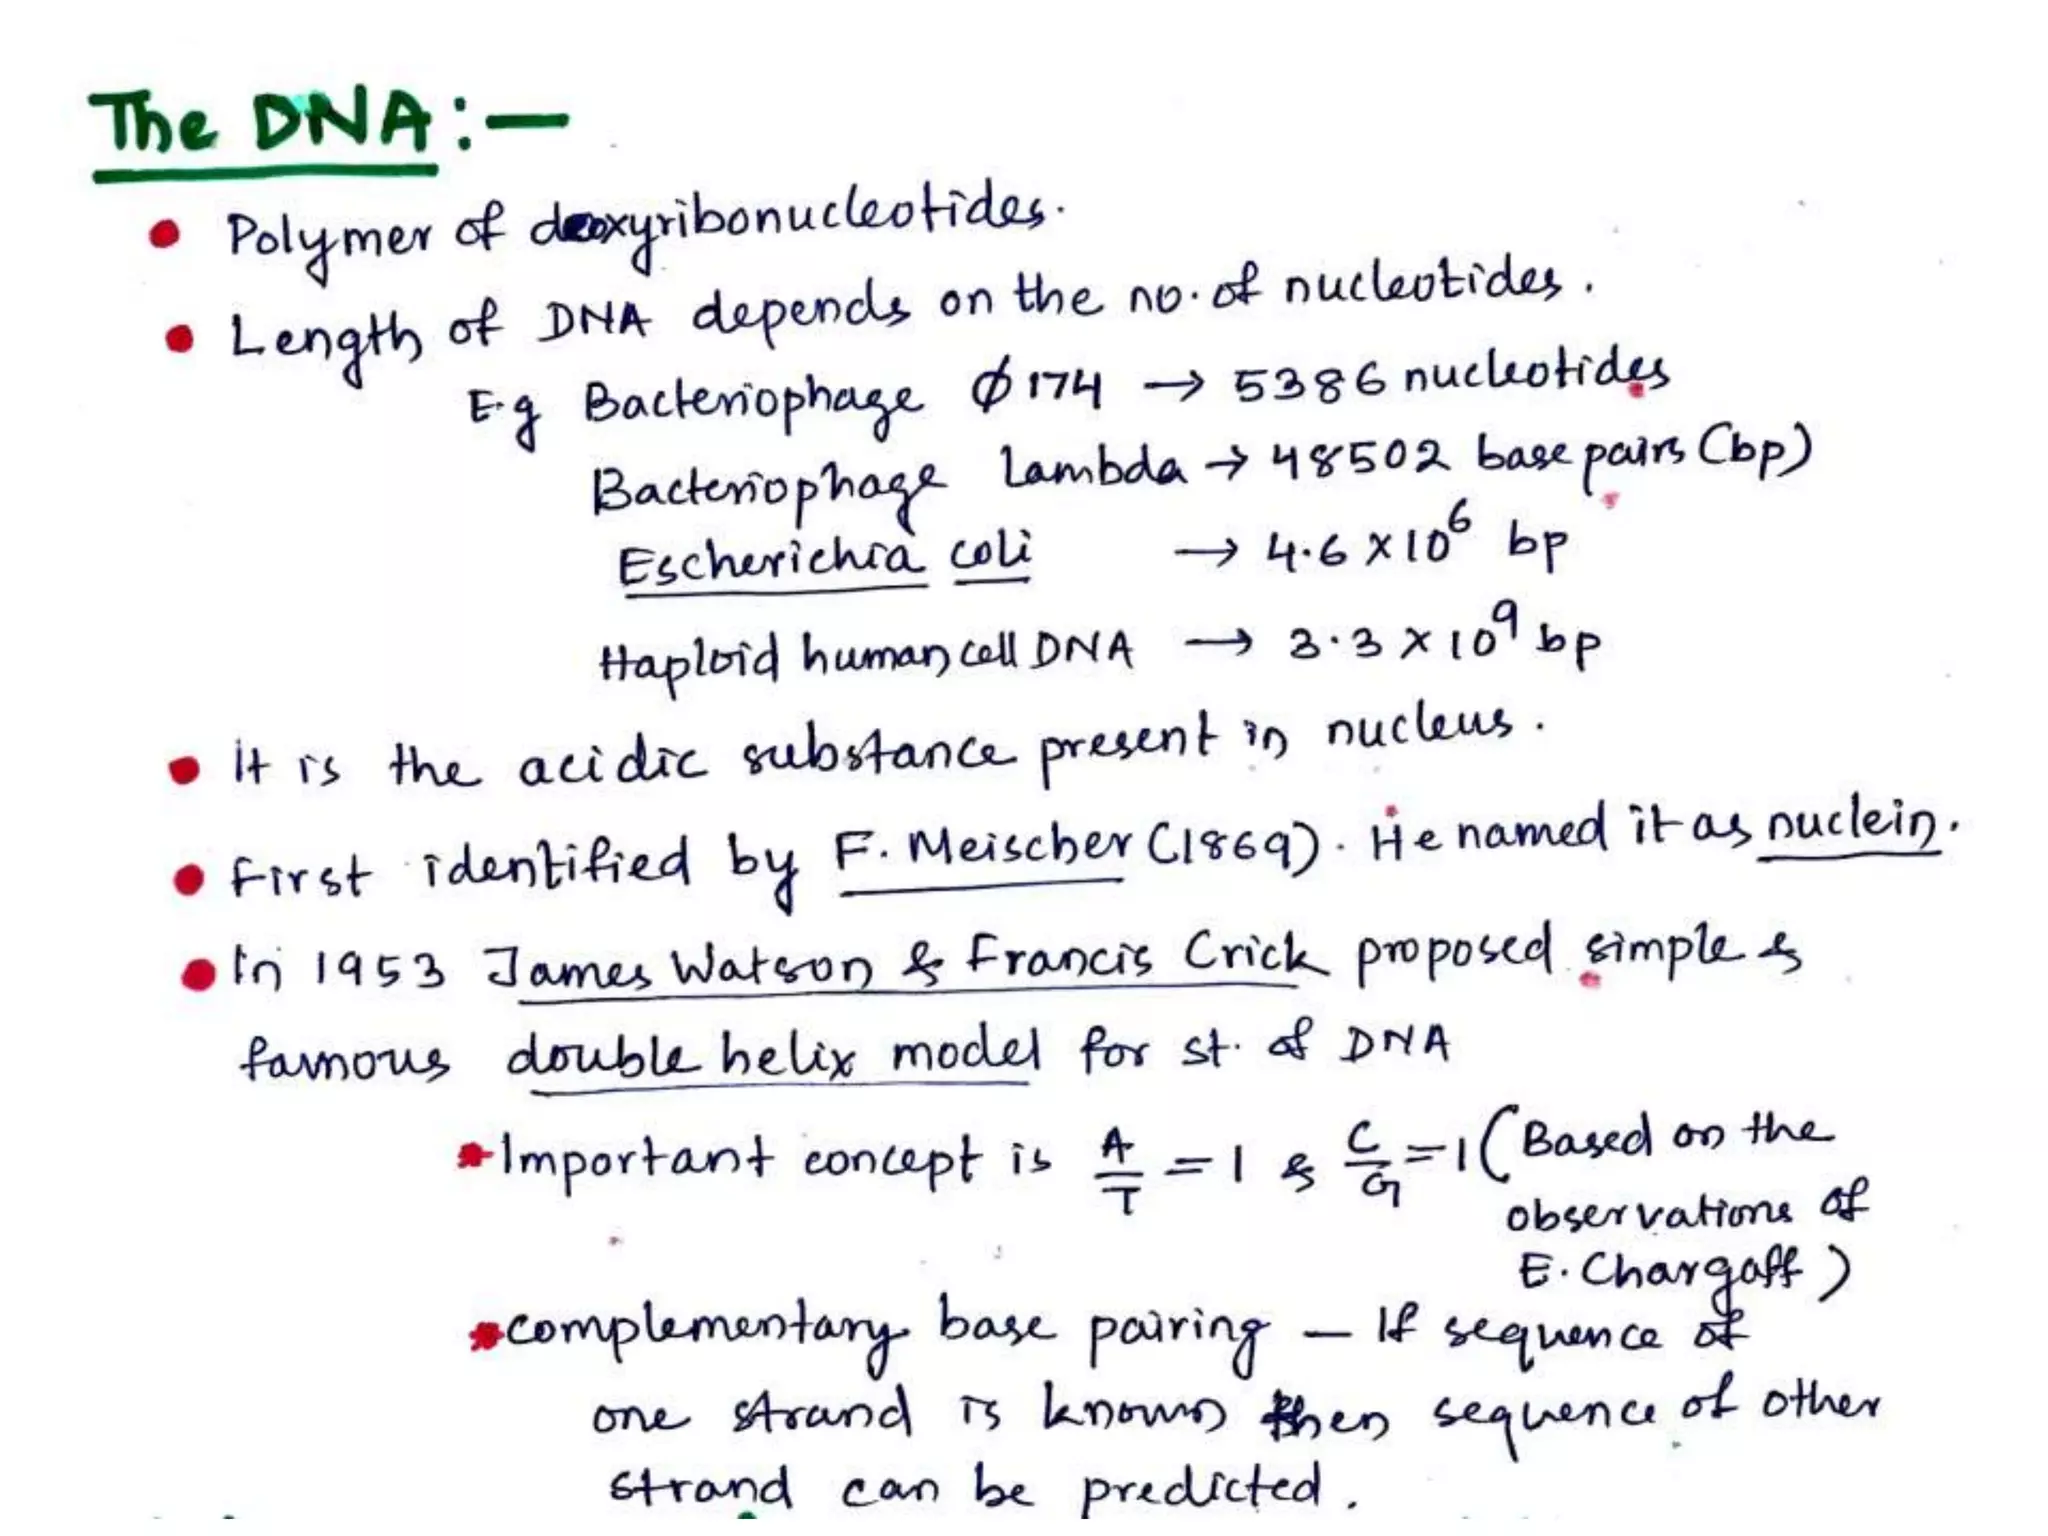 The DNA:—
• Polymer of deoxyribonucleotides.
• Length of DNA depends on the no. of nucleotides.
E.g Bacteriophage ϕ174 → 5386 nucleotides
Bacteriophage Lambda → 48502 base pairs (bp)
Escherichia coli → 4.6 × 10⁶ bp
Haploid human cell DNA → 3.3 × 10⁹ bp
• It is the acidic substance present in nucleus.
• First identified by F. Meischer (1869). He named it as nuclein.
• In 1953 James Watson & Francis Crick proposed simple &
famous double helix model for st. of DNA
* Important concept is A/T = 1 & C/G = 1 (Based on the
observations of
E. Chargaff)
* complementary base pairing — If sequence of
one strand is known then sequence of other
strand can be predicted.